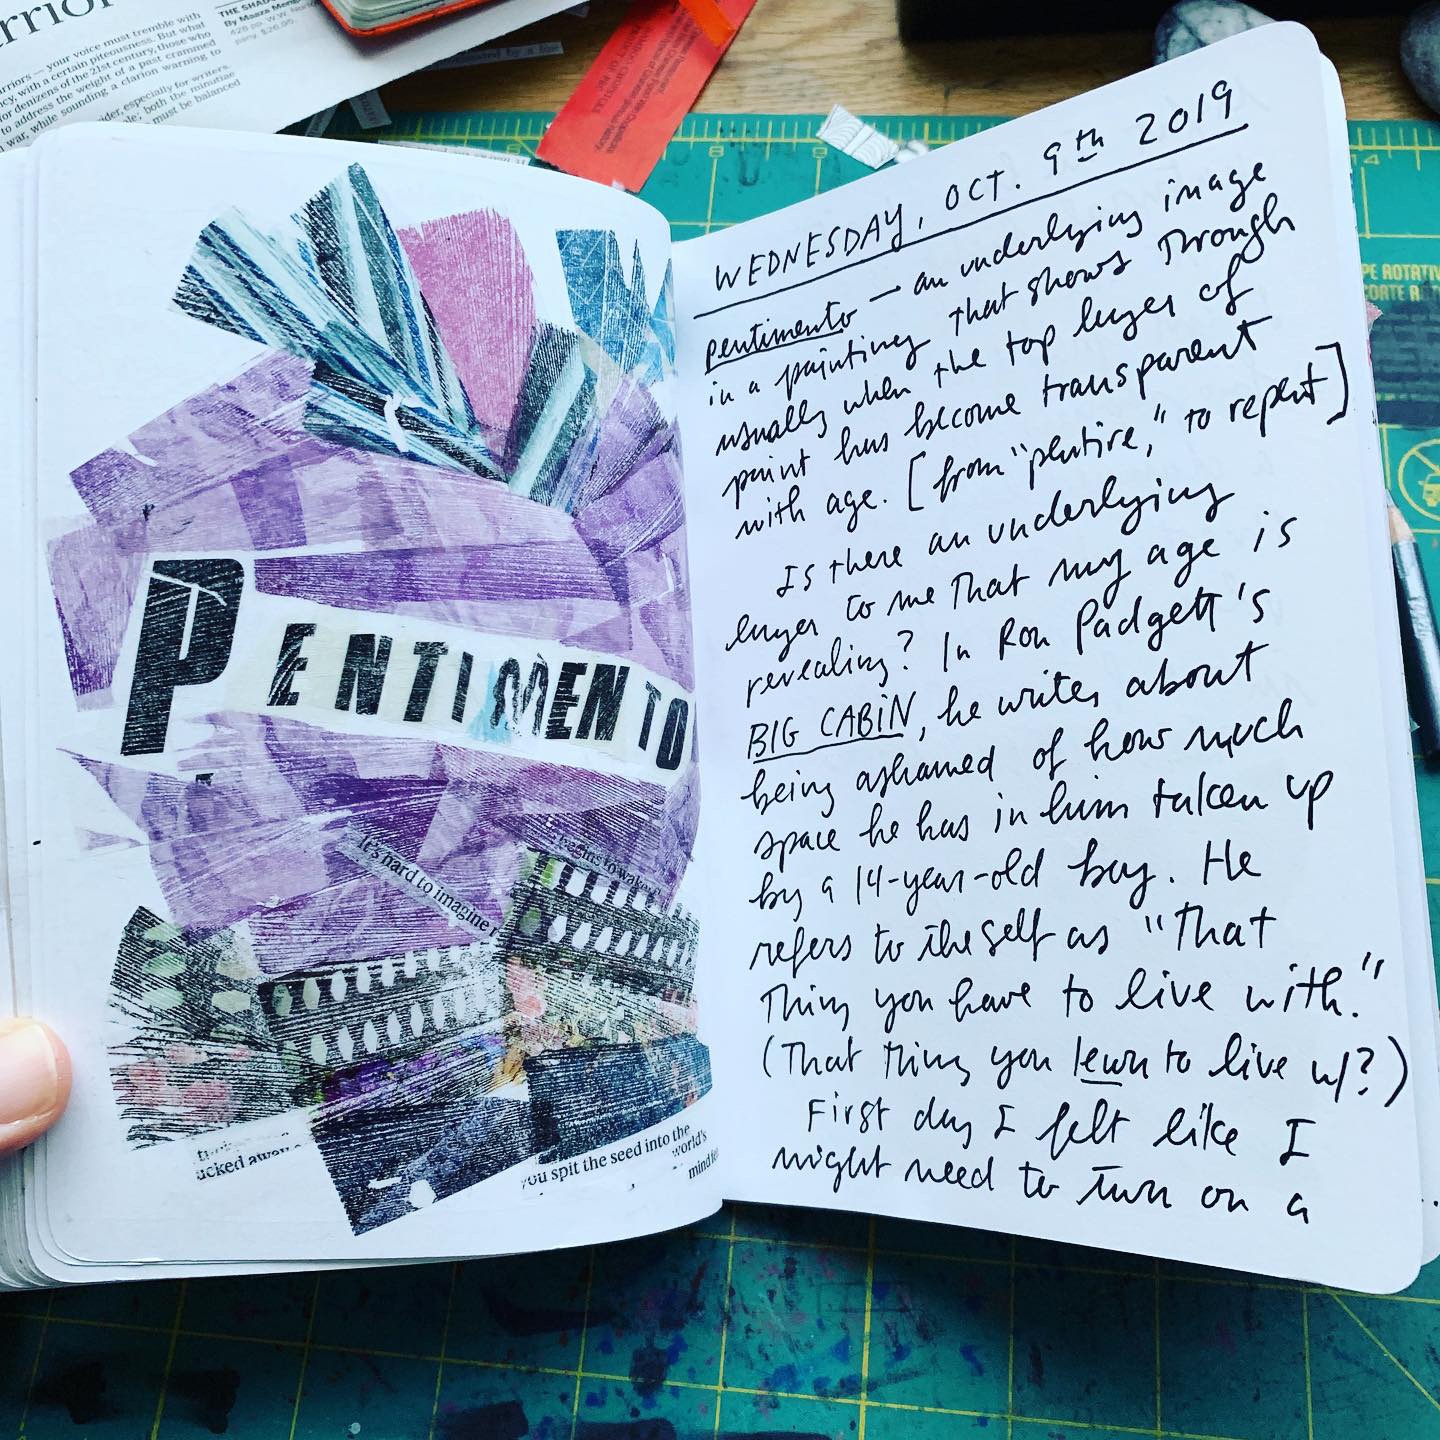 rrior
rriors — your voice must tremble with
with a certain piteousness. But what
for denizens of the 21st century, those who
to address the weight of a past crammed
war, while sounding a clarion warning to
especially for writers.
both the minutiae
must be balanced
THE SHAD
By Maaza Meng
428 pp. W.W. Nor
pany. $26.95.
PENTIMENTO
It's hard to imagine
begins to wake
ucked away
you spit the seed into the
world's
WEDNESDAY, OCT. 9th 2019
pentimento — an underlying image
in a painting that shows through
usually when the top layer of
paint has become transparent
with age. [from "pentire," to repent]
Is there an underlying
layer to me that my age is
revealing? In Ron Padgett's
BIG CABIN, he writes about
being ashamed of how much
space he has in him taken up
by a 14-year-old boy. He
refers to the self as "that
thing you have to live with."
(That thing you learn to live w/?)
First day I felt like I
might need to turn on a
14